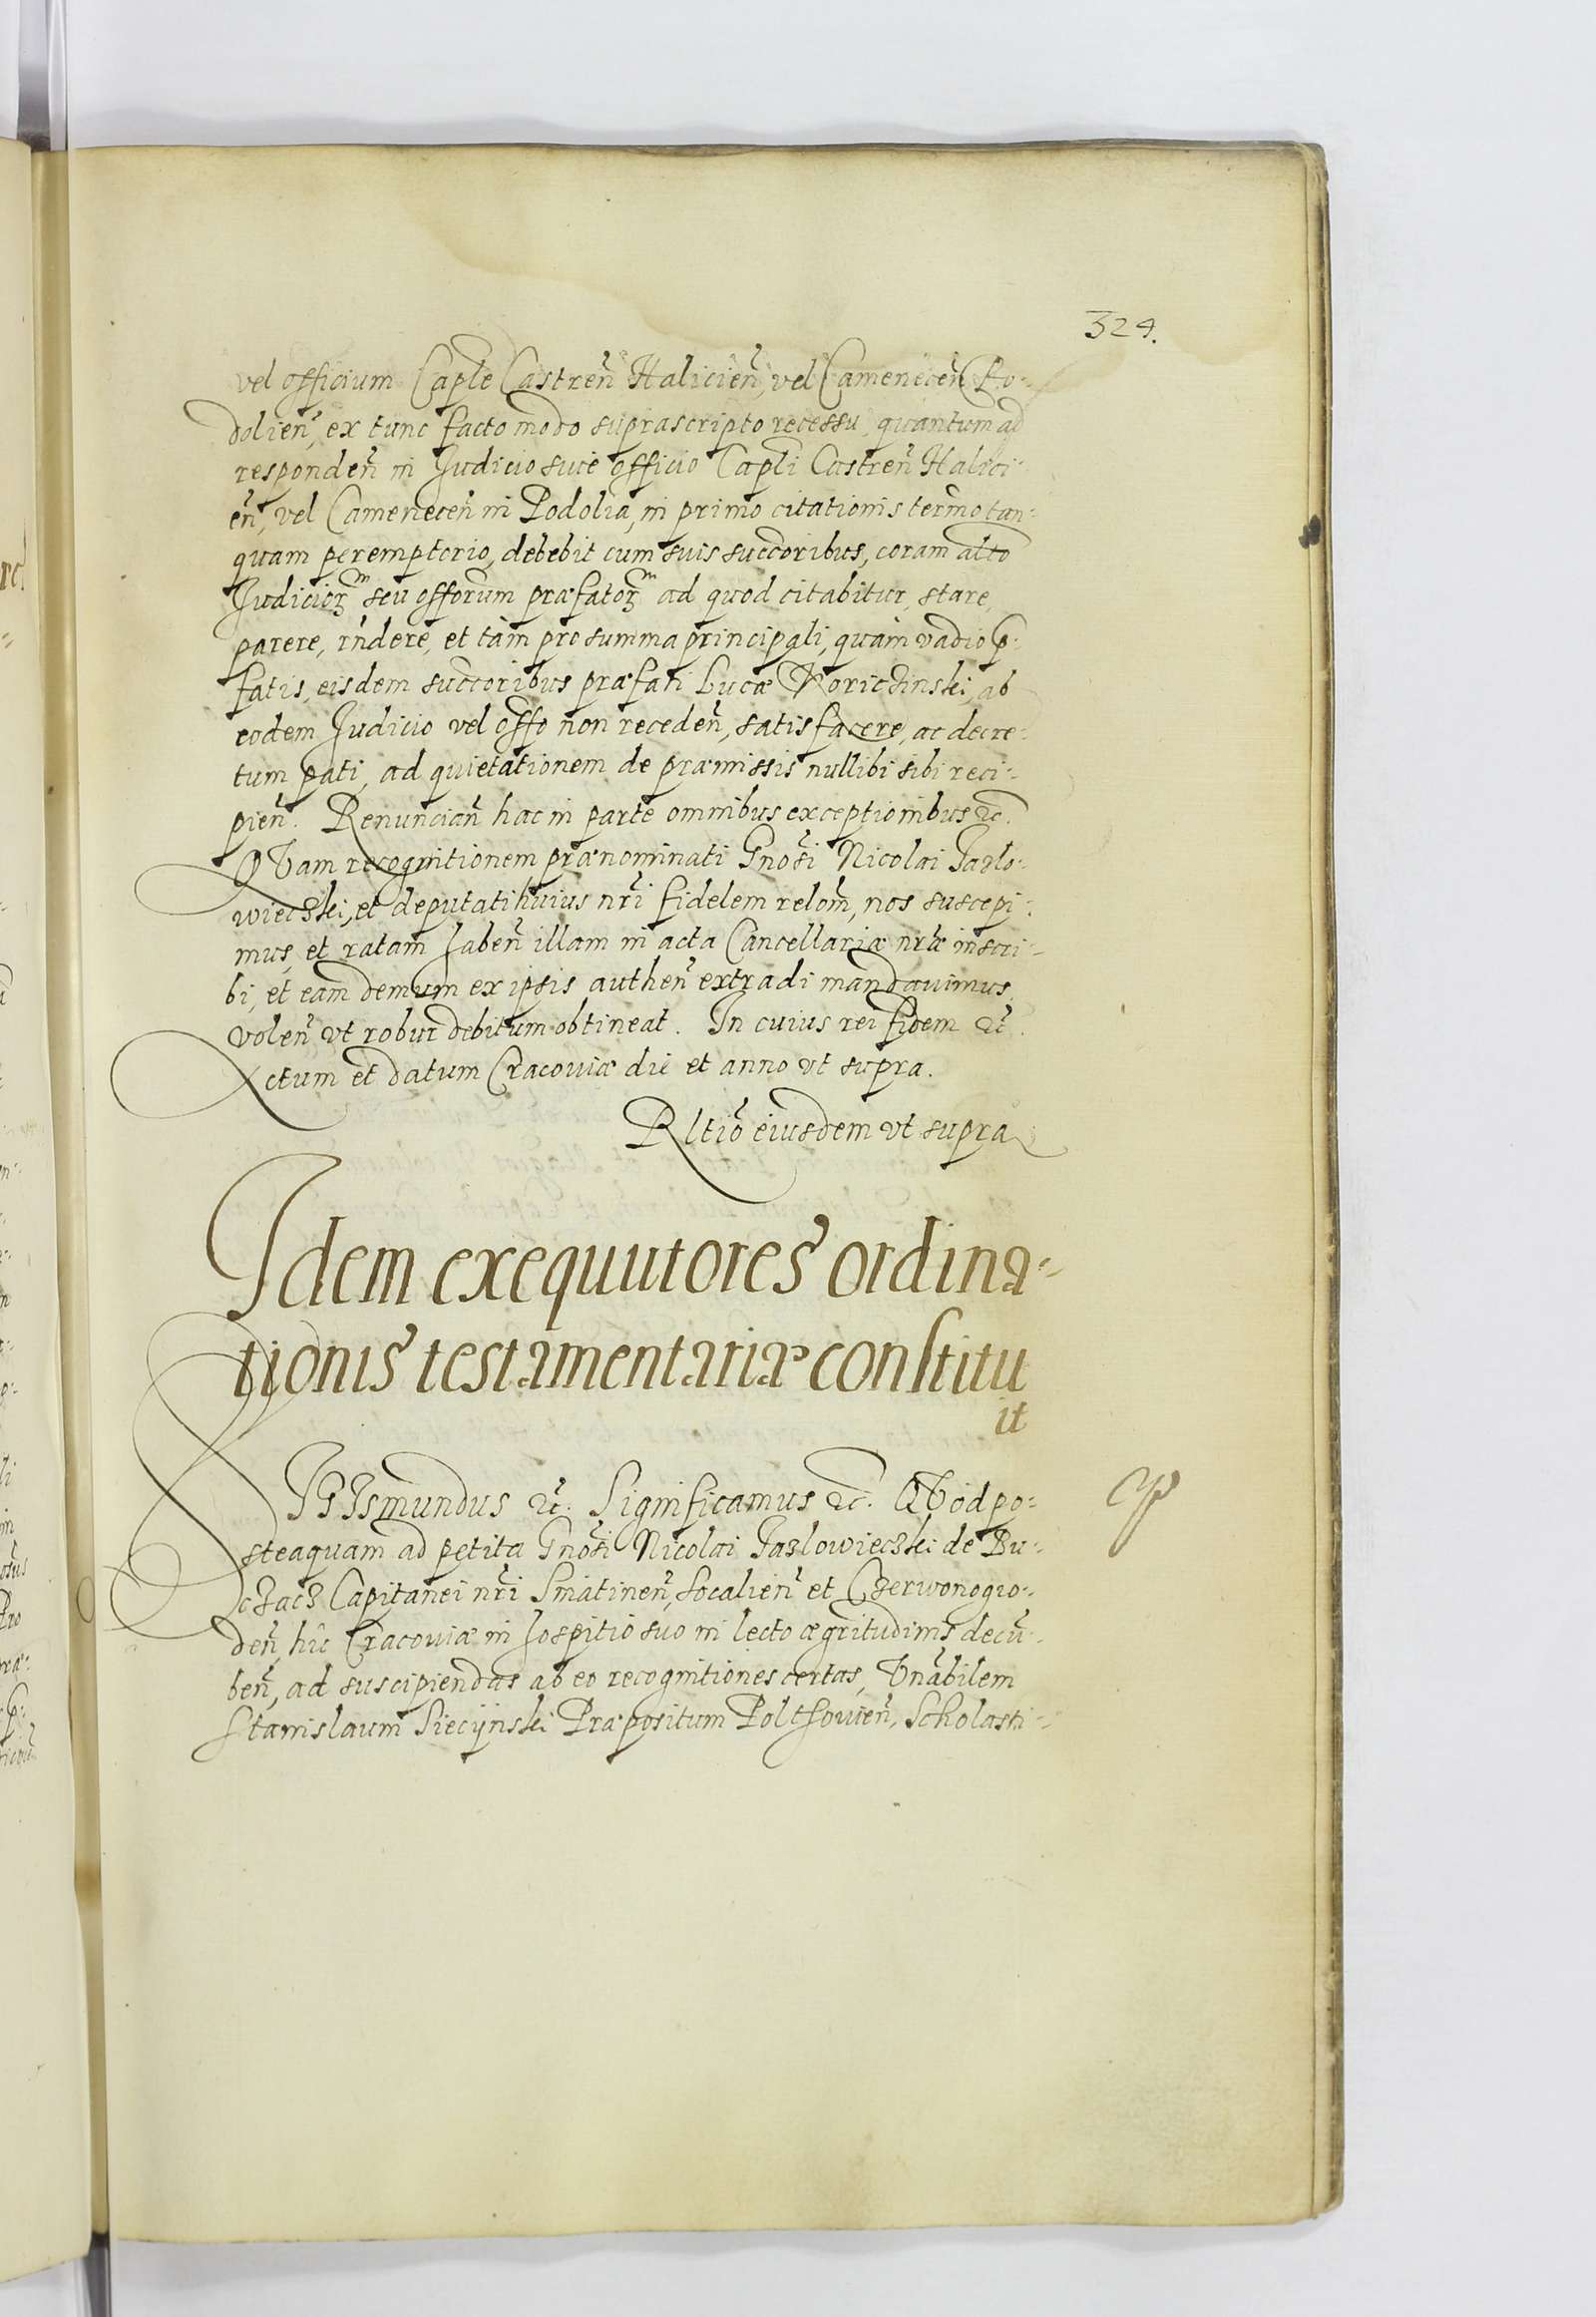 324.
vel officium Caple Castren̄ Halicien̄, vel Camenecen̄ Po-
dolien̄, ex tunc facto modo suprascripto recessu, quantum ad
responden̄ in Judicio sive officio Capli Castren̄ Halici-
en̄, vel Camenecen̄ in Podolia, in primo citationis termo tan-
quam peremptorio, debebit cum suis succoribus, coram alto
Judicioꝝ seu offorum præfatoꝝ ad quod citabitur, stare,
parere, rn̄dere, et tàm pro summa principali, quàm vadio p-
fatis, eisdem succoribus præfati Lucæ ab
eodem Judicio vel offo non receden̄, satisfacere, ac decre-
tum pati, ad quietationem de præmissis nullibi sibi reci-
pien̄. Renuncian̄ hac in parte omnibus exceptionibus ꝛc.
QVam recognitionem prænominati Gnosi Nicolai Jazlo-
wieczki, et deputati huius nr̄i fidelem relom̄, nos suscepi-
mus, et ratam haben̄ illam in acta Cancellariæ nr̄æ inscri-
bi, et eam demum ex ipsis authen̄ extradi mandavimus,
volen̄ vt robur debitum obtineat. In cuius rei fidem ꝛc.
Actum et datum Cracoviæ die et anno vt supra.
Rltiō eiusdem vt supra
Idem exequutores ordina-
tionis testamentariæ constitu
it
SIGIsmundus ꝛc. Significamus ꝛc. QVod po-
steaquam ad petita Gnosi Nicolai Jazlowieczki de Bu-
czacz Capitanei nr̄i Sniatinen̄, Socalien̄ et Czerwonogro-
den̄, hîc Cracoviæ in hospitio suo in lecto ægritudinis decū-
ben̄, ad suscipiendas ab eo recognitiones certas, Vnābilem
Stanislaum Siecijnski Præpositum Polthovien̄, Scholasti-